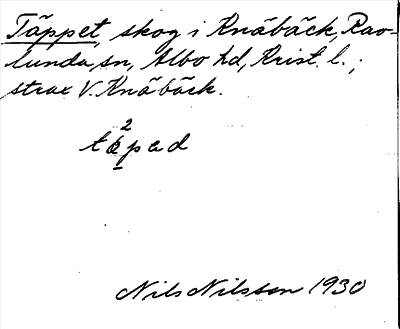 Täppet, skog i Knäbäck, Rav-
lunda sn, Albo hd, Krist. l.;
strax V. Knäbäck.
2
täpad
Nils Nilsson 1930